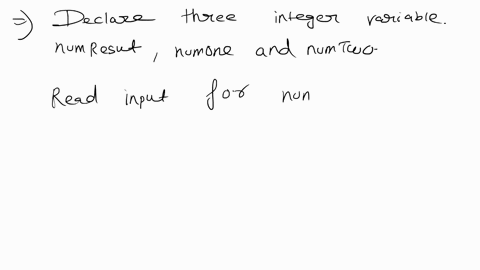 =) Declare three integer variable.
numResut, numone and numTwo.
Read input for nun